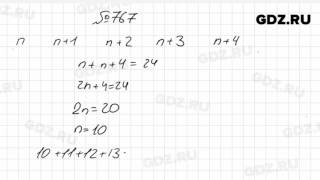 №767
GDZ.RU
n n+1 n+2 n+3 n+4
n+n+4=24
2n+4=24
2n=20
n=10
10+11+12+13·